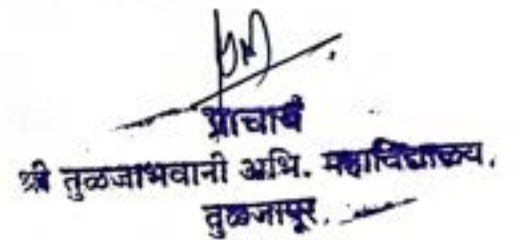 प्राचार्य
श्री तुळजाभवानी अभि. महाविद्यालय,
तुळजापूर.